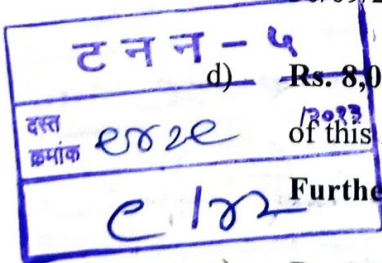 टनन - ५
d) Rs. 8,0
दस्त
क्रमांक ९४२९ /२०२३
of this
९/४२
Furthe